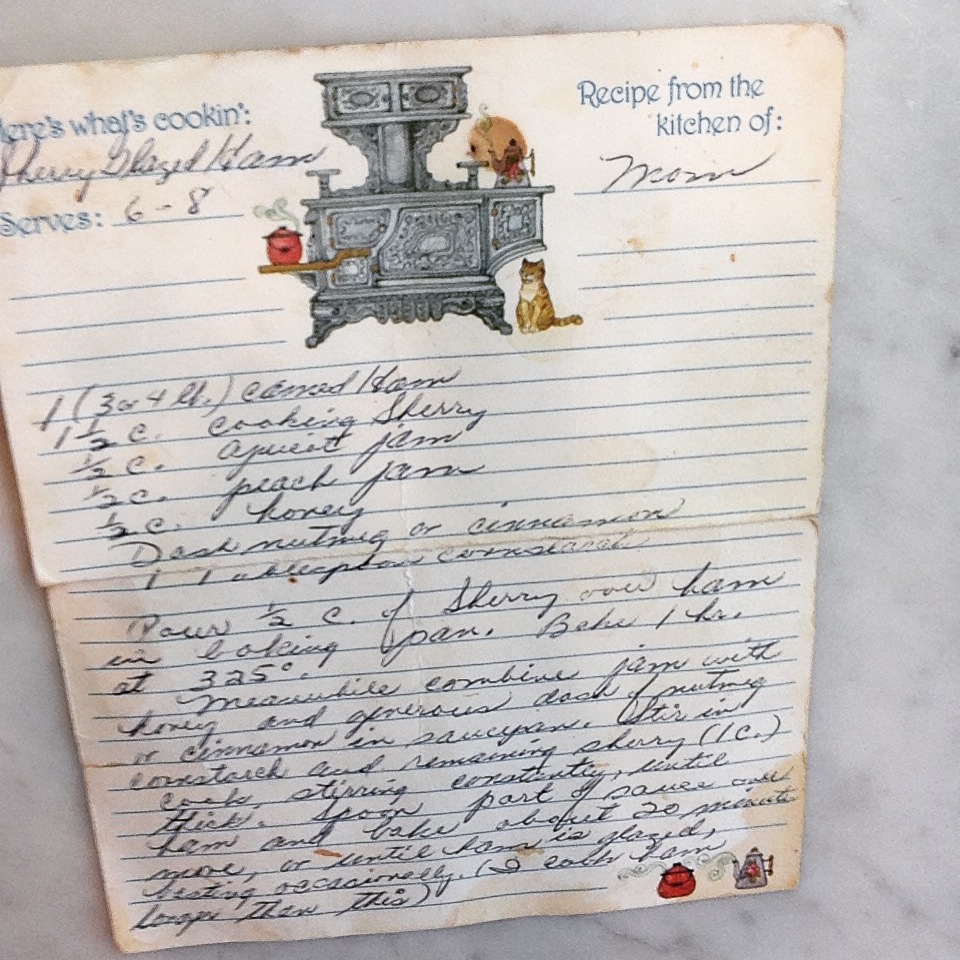 Here's what's cookin':
Sherry Glazed Ham
Serves: 6 - 8
Recipe from the
kitchen of:
Mom
1 (3 or 4 lb.) canned Ham
1 1/2 c. cooking Sherry
1/2 c. apricot jam
1/2 c. peach jam
1/2 c. honey
Dash nutmeg or cinnamon
1 Tablespoon cornstarch
Pour 1/2 c. of Sherry over ham
in baking pan. Bake 1 hr.
at 325°.
Meanwhile combine jam with
honey and generous dash of nutmeg
or cinnamon in saucepan. Stir in
cornstarch and remaining sherry (1 c.)
cook, stirring constantly, until
thick. Spoon part of sauce over
ham and bake about 20 minutes
more, or until ham is glazed,
basting occasionally. (I cook ham
longer than this)